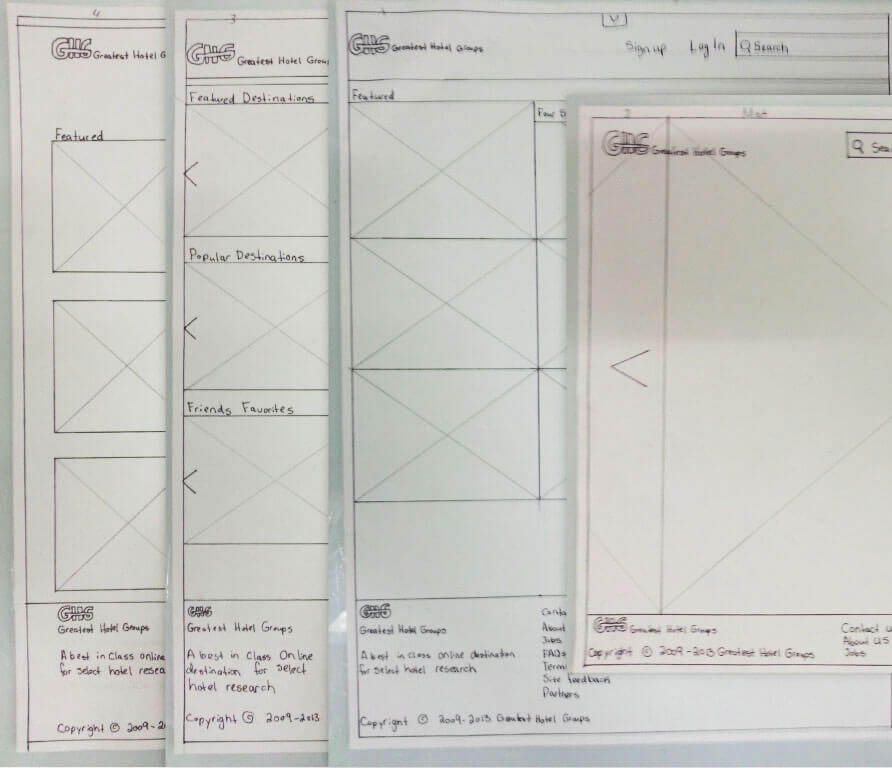 4
GHG Greatest Hotel G
Featured
GHG
Greatest Hotel Groups
A best in Class online
for select hotel resea
Copyright © 2009-2
3
GHG Greatest Hotel Grou
Featured Destinations
Popular Destinations
Friends Favorites
GHG
Greatest Hotel Groups
A best in Class Online
destination for select
hotel research
Copyright © 2009-2013
1
GHG Greatest Hotel Groups
Sign up Log In Search
Featured
Four S
GHG
Greatest Hotel Groups
A best in class online destination
for select hotel research
Copyright © 2009-2013 Greatest Hotel Groups
Conta
About
Jobs
FAQs
Term
Site feedback
Partners
2
GHG Greatest Hotel Groups
Sea
GHG Greatest Hotel Groups
Copyright © 2009-2013 Greatest Hotel Groups
Contact u
About us
Jobs